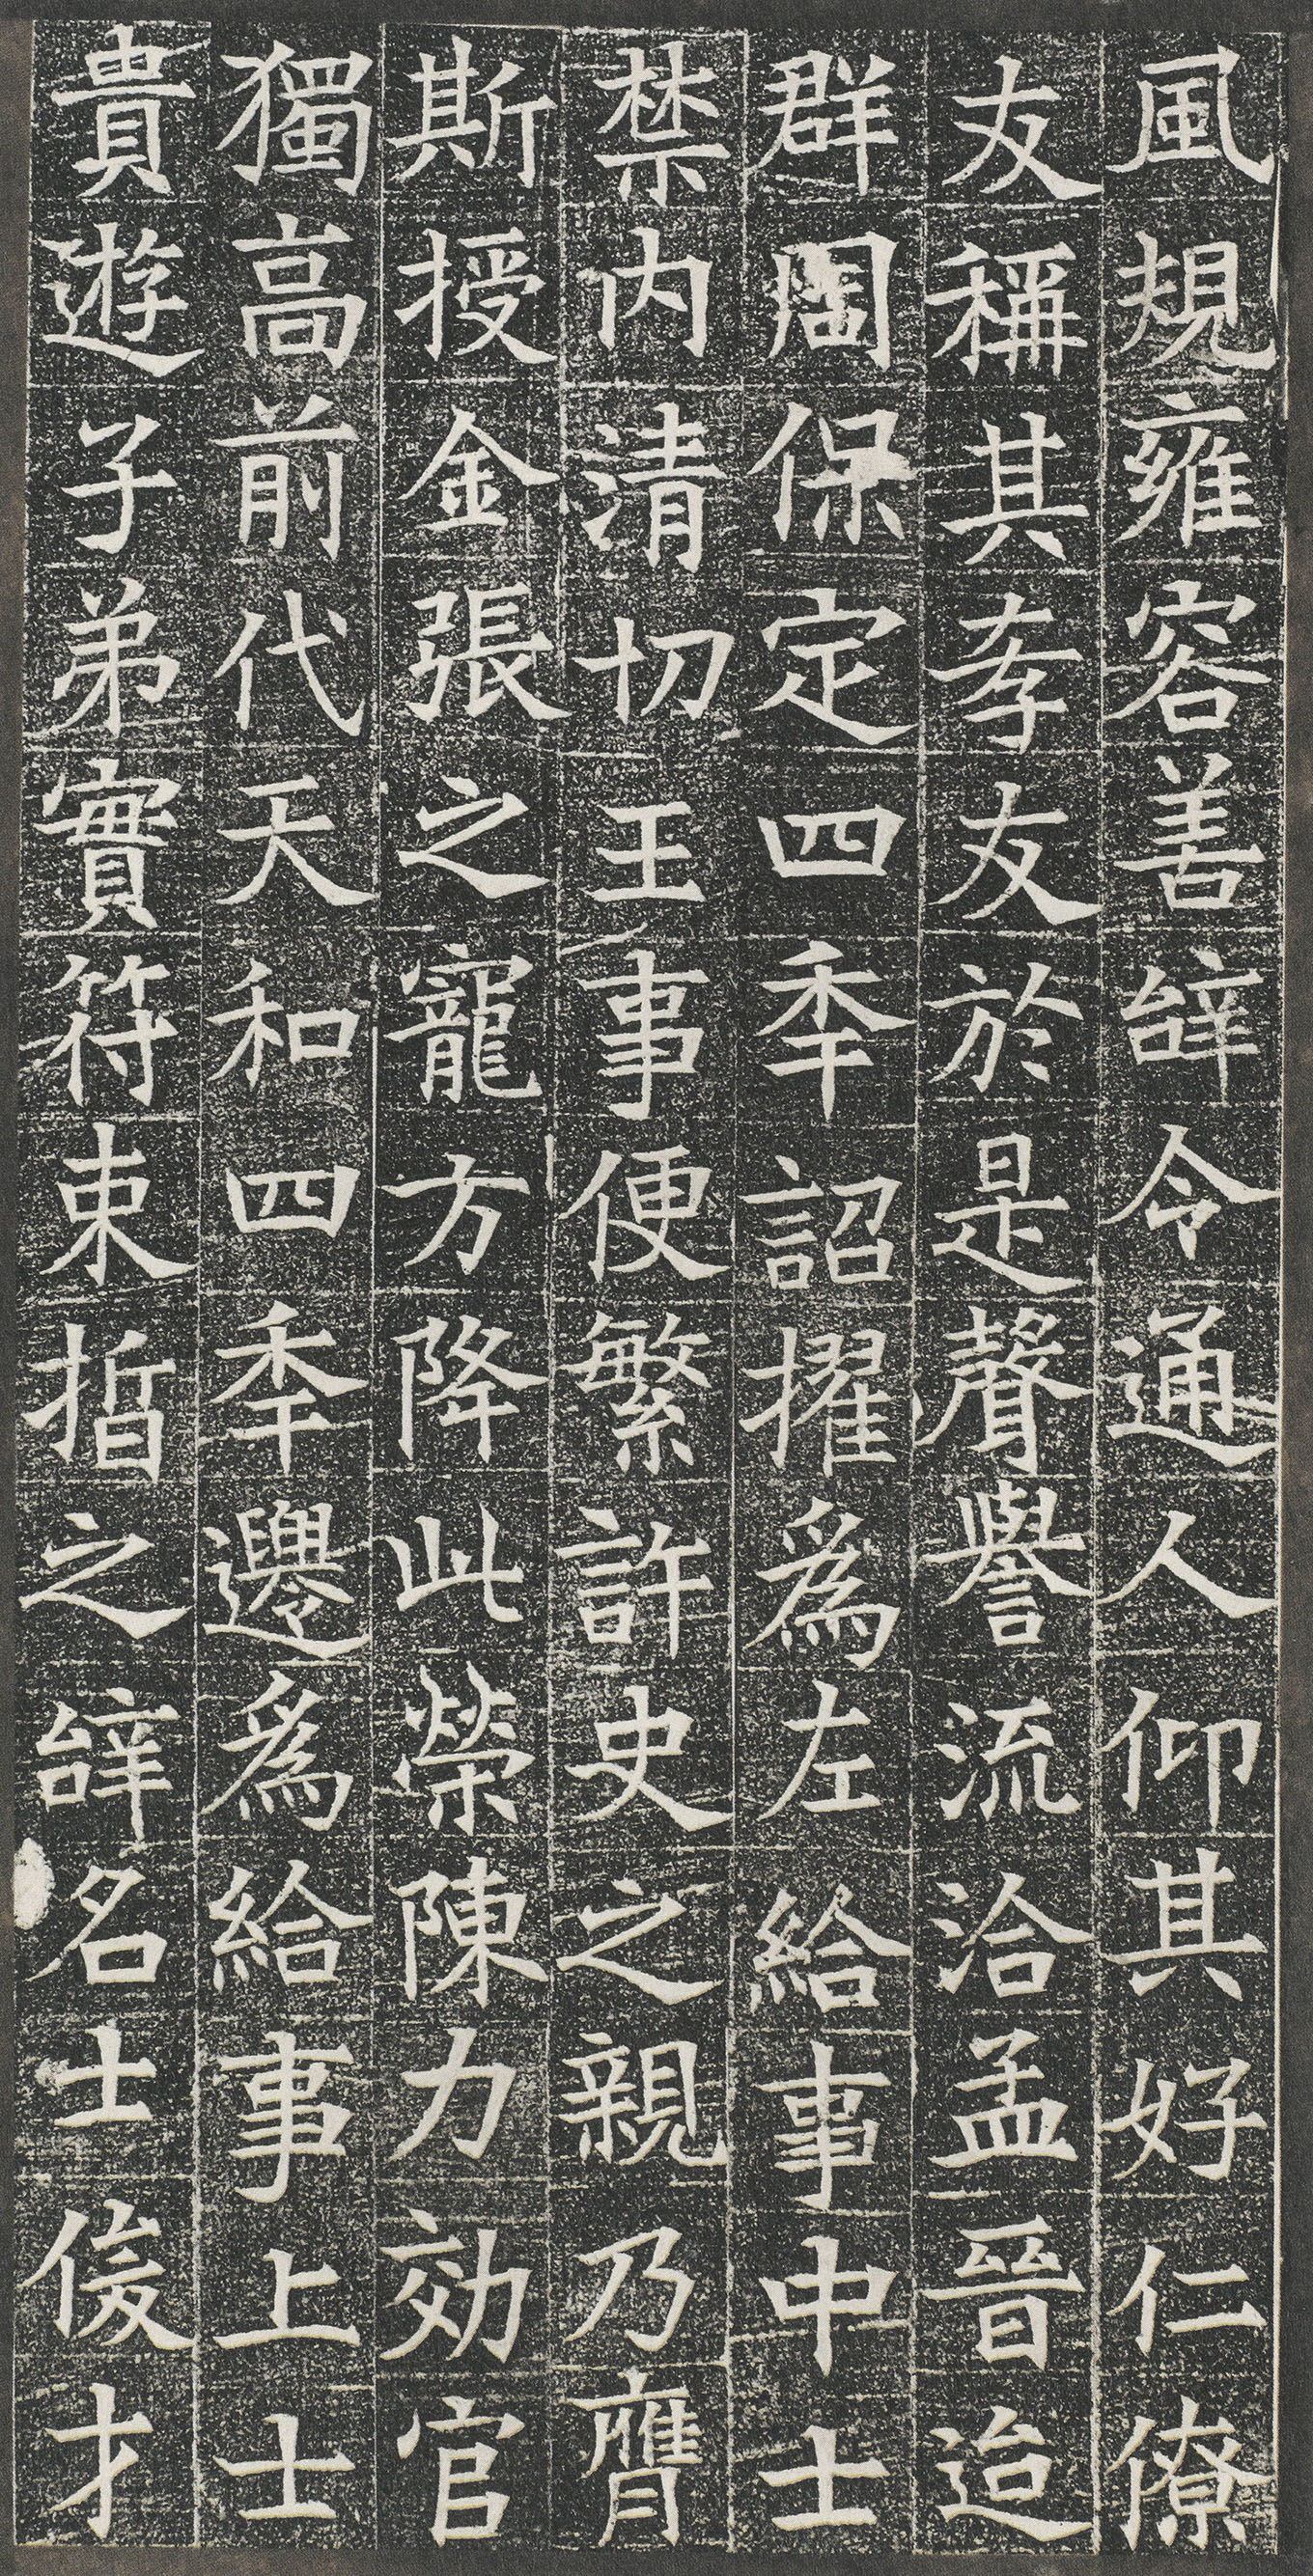 風規雍容善辝令通人仰其好仁僚
友稱其孝友於是聲譽流洽孟晉迨
群周保定四秊詔擢為左給事中士
禁内清切王事便繁許史之親乃膺
斯授金張之寵方降此榮陳力効官
獨高前代天和四秊遷為給事上士
貴遊子弟實符束晳之辝名士俊才